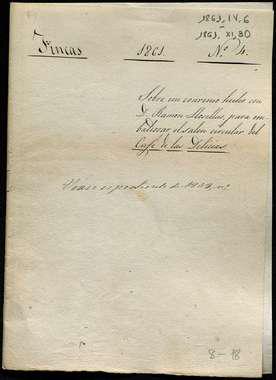 1861, IV, 6
1861, XI, 30
Fincas 1861. N.º 4.
Sobre un convenio hecho con
D. Ramon para em
baldosar el salon circular del
Café de las Delicias.
Véase expediente de
8-18